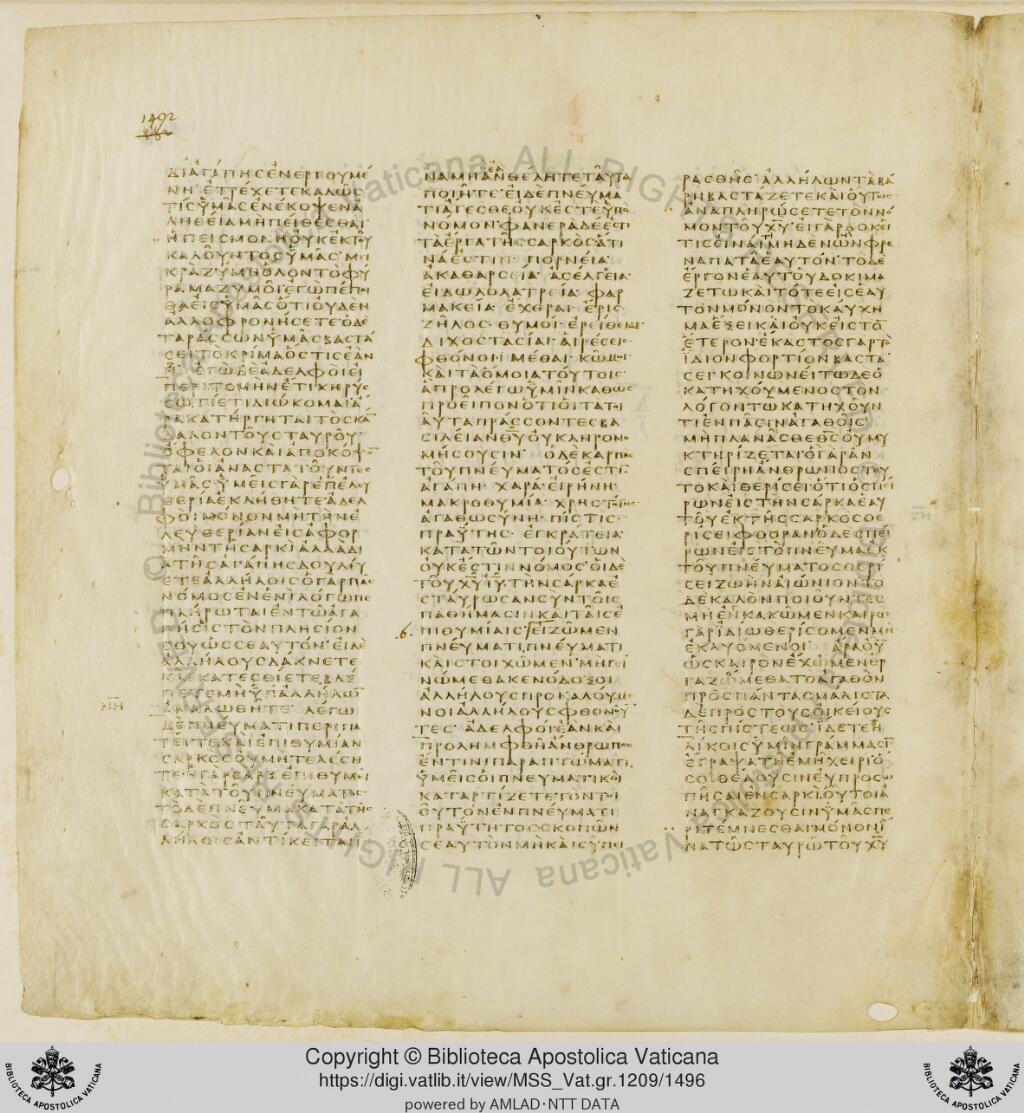 1492
ΔΙΑΓΑΠΗϹΕΝΕΡΓΟΥΜΕ
ΝΗ·ΕΤΡΕΧΕΤΕΚΑΛΩϹ
ΤΙϹΥΜΑϹΕΝΕΚΟΨΕΝΑ
ΛΗΘΕΙΑΜΗΠΕΙΘΕϹΘΑΙ
ΗΠΕΙϹΜΟΝΗΟΥΚΕΚΤΟΥ
ΚΑΛΟΥΝΤΟϹΥΜΑϹ·ΜΙ
ΚΡΑΖΥΜΗΟΛΟΝΤΟΦΥ
ΡΑΜΑΖΥΜΟΙ·ΕΓΩΠΕΠΟΙ
ΘΑΕΙϹΥΜΑϹΟΤΙΟΥΔΕΝ
ΑΛΛΟΦΡΟΝΗϹΕΤΕ·ΟΔΕ
ΤΑΡΑϹϹΩΝΥΜΑϹΒΑϹΤΑ
ϹΕΙΤΟΚΡΙΜΑΟϹΤΙϹΕΑΝ
Η· ΕΓΩΔΕΑΔΕΛΦΟΙΕΙ
ΠΕΡΙΤΟΜΗΝΕΤΙΚΗΡΥϹ
ϹΩΤΙΕΤΙΔΙΩΚΟΜΑΙΑ
ΡΑΚΑΤΗΡΓΗΤΑΙΤΟϹΚᾹ
ΔΑΛΟΝΤΟΥϹΤΑΥΡΟΥ·
ΟΦΕΛΟΝΚΑΙΑΠΟΚΟΨΟ
ΤΑΙΟΙΑΝΑϹΤΑΤΟΥΝΤΕϹ
ΥΜΑϹ·ΥΜΕΙϹΓΑΡΕΠΕΛΕΥ
ΘΕΡΙΑΕΚΛΗΘΗΤΕΑΔΕΛ
ΦΟΙ·ΜΟΝΟΝΜΗΤΗΝΕ
ΛΕΥΘΕΡΙΑΝΕΙϹΑΦΟΡ
ΜΗΝΤΗϹΑΡΚΙΑΛΛΑΔΙ
ΑΤΗϹΑΓΑΠΗϹΔΟΥΛΕΥ
ΕΤΕΑΛΛΗΛΟΙϹ·ΟΓΑΡΠΑϹ
ΝΟΜΟϹΕΝΕΝΙΛΟΓΩΠΕ
ΠΛΗΡΩΤΑΙΕΝΤΩΑΓΑ
ΠΗϹΕΙϹΤΟΝΠΛΗϹΙΟΝ
ϹΟΥΩϹϹΕΑΥΤΟΝ·ΕΙΔΕ
ΑΛΛΗΛΟΥϹΔΑΚΝΕΤΕ
ΚΑΙΚΑΤΕϹΘΙΕΤΕΒΛΕ
ΠΕΤΕΜΗΥΠΑΛΛΗΛΩ̄
ΑΝΑΛΩΘΗΤΕ· ΛΕΓΩ
ΔΕΠΝΕΥΜΑΤΙΠΕΡΙΠΑ
ΤΕΙΤΕΚΑΙΕΠΙΘΥΜΙΑΝ
ϹΑΡΚΟϹΟΥΜΗΤΕΛΕϹΗ
ΤΕ·ΗΓΑΡϹΑΡΞΕΠΙΘΥΜΕΙ
ΚΑΤΑΤΟΥΠΝΕΥΜΑΤΟϹ
ΤΟΔΕΠΝΕΥΜΑΚΑΤΑΤΗϹ
ϹΑΡΚΟϹΤΑΥΤΑΓΑΡΑΛ
ΛΗΛΟΙϹΑΝΤΙΚΕΙΤΑΙΙ
ΝΑΜΗΑΕΑΝΘΕΛΗΤΕΤΑΥΤΑ
ΠΟΙΗΤΕ·ΕΙΔΕΠΝΕΥΜΑ
ΤΙΑΓΕϹΘΕΟΥΚΕϹΤΕΥΠΟ
ΝΟΜΟΝ·ΦΑΝΕΡΑΔΕΕϹΤΙ
ΤΑΕΡΓΑΤΗϹϹΑΡΚΟϹΑΤΙ
ΝΑΕϹΤΙΝ· ΠΟΡΝΕΙΑ·
ΑΚΑΘΑΡϹΕΙΑ· ΑϹΕΛΓΕΙΑ·
ΕΙΔΩΛΟΛΑΤΡΕΙΑ· ΦΑΡ
ΜΑΚΕΙΑ· ΕΧΘΡΑΙ· ΕΡΙϹ·
ΖΗΛΟϹ· ΘΥΜΟΙ· ΕΡΕΙΘΕΙΑΙ·
ΔΙΧΟϹΤΑϹΙΑΙ· ΑΙΡΕϹΕΙϹ·
ΦΘΟΝΟΙ· ΜΕΘΑΙ· ΚΩΜΟΙ·
ΚΑΙΤΑΟΜΟΙΑΤΟΥΤΟΙϹ·
ΑΠΡΟΛΕΓΩΥΜΙΝΚΑΘΩϹ
ΠΡΟΕΙΠΟΝΟΤΙΟΙΤΑΤΟΙ
ΑΥΤΑΠΡΑϹϹΟΝΤΕϹΒΑ
ϹΙΛΕΙΑΝΘ̅Υ̅ΟΥΚΛΗΡΟΝΟ
ΜΗϹΟΥϹΙΝ· ΟΔΕΚΑΡΠΟϹ
ΤΟΥΠΝΕΥΜΑΤΟϹΕϹΤῙ
ΑΓΑΠΗ· ΧΑΡΑ· ΕΙΡΗΝΗ·
ΜΑΚΡΟΘΥΜΙΑ· ΧΡΗϹΤΟΤΗϹ·
ΑΓΑΘΩϹΥΝΗ· ΠΙϹΤΙϹ·
ΠΡΑΥΤΗϹ· ΕΓΚΡΑΤΕΙΑ·
ΚΑΤΑΤΩΝΤΟΙΟΥΤΩΝ
ΟΥΚΕϹΤΙΝΝΟΜΟϹ·ΟΙΔΕ
ΤΟΥΧ̅Υ̅Ι̅Υ̅ΤΗΝϹΑΡΚΑΕ
ϹΤΑΥΡΩϹΑΝϹΥΝΤΟΙϹ
ΠΑΘΗΜΑϹΙΝΚΑΙΤΑΙϹΕ
ΠΙΘΥΜΙΑΙϹ·ΕΙΖΩΜΕΝ
ΠΝΕΥΜΑΤΙ,ΠΝΕΥΜΑΤΙ
ΚΑΙϹΤΟΙΧΩΜΕΝ·ΜΗΓΕΙ
ΝΩΜΕΘΑΚΕΝΟΔΟΞΟΙ
ΑΛΛΗΛΟΥϹΠΡΟΚΑΛΟΥΜΕ
ΝΟΙΑΛΛΗΛΟΥϹΦΘΟΝΟῩ
ΤΕϹ· ΑΔΕΛΦΟΙΕΑΝΚΑΙ
ΠΡΟΛΗΜΦΘΗΑΝΘΡΩΠΟϹ
ΕΝΤΙΝΙΠΑΡΑΠΤΩΜΑΤΙ,
ΥΜΕΙϹΟΙΠΝΕΥΜΑΤΙΚΟΙ
ΚΑΤΑΡΤΙΖΕΤΕΤΟΝΤΟΙ
ΟΥΤΟΝΕΝΠΝΕΥΜΑΤΙ
ΠΡΑΥΤΗΤΟϹϹΚΟΠΩΝ
ϹΕΑΥΤΟΝΜΗΚΑΙϹΥΠΕΙ
ΡΑϹΘΗϹ·ΑΛΛΗΛΩΝΤΑΒΑ
ΡΗΒΑϹΤΑΖΕΤΕΚΑΙΟΥΤΩϹ
ΑΝΑΠΛΗΡΩϹΕΤΕΤΟΝΝΟ
ΜΟΝΤΟΥΧ̅Υ̅·ΕΙΓΑΡΔΟΚΕΙ
ΤΙϹΕΙΝΑΙΤΙΜΗΔΕΝΩΝΦΡΕ
ΝΑΠΑΤΑΕΑΥΤΟΝ·ΤΟΔΕ
ΕΡΓΟΝΕΑΥΤΟΥΔΟΚΙΜΑ
ΖΕΤΩΚΑΙΤΟΤΕΕΙϹΕΑΥ
ΤΟΝΜΟΝΟΝΤΟΚΑΥΧΗ
ΜΑΕΞΕΙΚΑΙΟΥΚΕΙϹΤΟ̄
ΕΤΕΡΟΝ·ΕΚΑϹΤΟϹΓΑΡΤΟ
ΙΔΙΟΝΦΟΡΤΙΟΝΒΑϹΤΑ
ϹΕΙ· ΚΟΙΝΩΝΕΙΤΩΔΕΟ
ΚΑΤΗΧΟΥΜΕΝΟϹΤΟΝ
ΛΟΓΟΝΤΩΚΑΤΗΧΟΥΝ
ΤΙΕΝΠΑϹΙΝΑΓΑΘΟΙϹ·
ΜΗΠΛΑΝΑϹΘΕΘ̅Ϲ̅ΟΥΜΥ
ΚΤΗΡΙΖΕΤΑΙ·ΟΓΑΡΑΝ
ϹΠΕΙΡΗΑΝΘΡΩΠΟϹΤΟΥ
ΤΟΚΑΙΘΕΡΙϹΕΙ·ΟΤΙΟϹΠΕΙ
ΡΩΝΕΙϹΤΗΝϹΑΡΚΑΕΑΥ
ΤΟΥΕΚΤΗϹϹΑΡΚΟϹΘΕ
ΡΙϹΕΙΦΘΟΡΑΝ·ΟΔΕϹΠΕΙ
ΡΩΝΕΙϹΤΟΠΝΕΥΜΑΕΚ
ΤΟΥΠΝΕΥΜΑΤΟϹΘΕΡΙ
ϹΕΙΖΩΗΝΑΙΩΝΙΟΝ·ΤΟ
ΔΕΚΑΛΟΝΠΟΙΟΥΝΤΕϹ
ΜΗΕΝΚΑΚΩΜΕΝΚΑΙΡΩ
ΓΑΡΙΔΙΩΘΕΡΙϹΟΜΕΝΜΗ
ΕΚΛΥΟΜΕΝΟΙ· ΑΡΑΟῩ
ΩϹΚΑΙΡΟΝΕΧΩΜΕΝΕΡ
ΓΑΖΩΜΕΘΑΤΟΑΓΑΘΟΝ
ΠΡΟϹΠΑΝΤΑϹΜΑΛΙϹΤΑ
ΔΕΠΡΟϹΤΟΥϹΟΙΚΕΙΟΥϹ
ΤΗϹΠΙϹΤΕΩϹ·ΙΔΕΤΕΗ
ΛΙΚΟΙϹΥΜΙΝΓΡΑΜΜΑϹῙ
ΕΓΡΑΨΑΤΗΕΜΗΧΕΙΡΙ·Ο
ϹΟΙΘΕΛΟΥϹΙΝΕΥΠΡΟϹΩ
ΠΗϹΑΙΕΝϹΑΡΚΙ,ΟΥΤΟΙΑ
ΝΑΓΚΑΖΟΥϹΙΝΥΜΑϹΠΕ
ΡΙΤΕΜΝΕϹΘΑΙΜΟΝΟΝΪ
ΝΑΤΩϹΤΑΥΡΩΤΟΥΧ̅Υ̅
Copyright © Biblioteca Apostolica Vaticana
https://digi.vatlib.it/view/MSS_Vat.gr.1209/1496
powered by AMLAD·NTT DATA
BIBLIOTECA APOSTOLICA VATICANA
BIBLIOTECA APOSTOLICA VATICANA